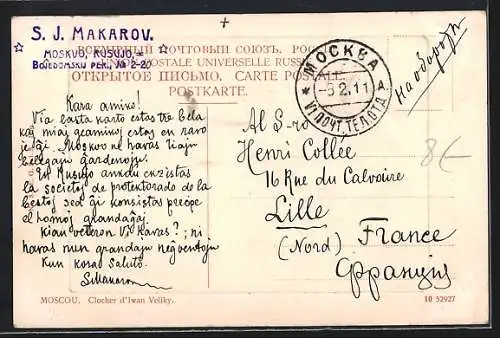 S. J. MAKAROV.
MOSKVO, RUSUJO,=
BOJEDOMSKIJ PER., № 2-2.
ВСЕМІРНЫЙ ПОЧТОВЫЙ СОЮЗЪ. РОС
UNION POSTALE UNIVERSELLE RUSSI
ОТКРЫТОЕ ПИСЬМО. CARTE POSTALE.
POSTKARTE.
МОСКВА
-8 2.11
На оборотѣ
Kara amiko!
Via lasta karto estas tre bela
kaj miaj geamikoj estas en ravo
je ĝi. Moskvo ne havas tiajn
belegajn ĝardenojn.
En Rusujo ankaŭ ekzistas
la societoj de protektorado de la
bestoj sed ĝi konsistas precipe
el homoj grandaĝaj.
Kian veteron Vi havas?; ni
havas nun grandajn neĝventojn
Kun kora saluto.
SMakarov
Al S-ro
Henri Collée
16 Rue du Calvaire
Lille
(Nord) France
Франція
8€
MOSCOU. Clocher d'Iwan Veliky.
10 52927